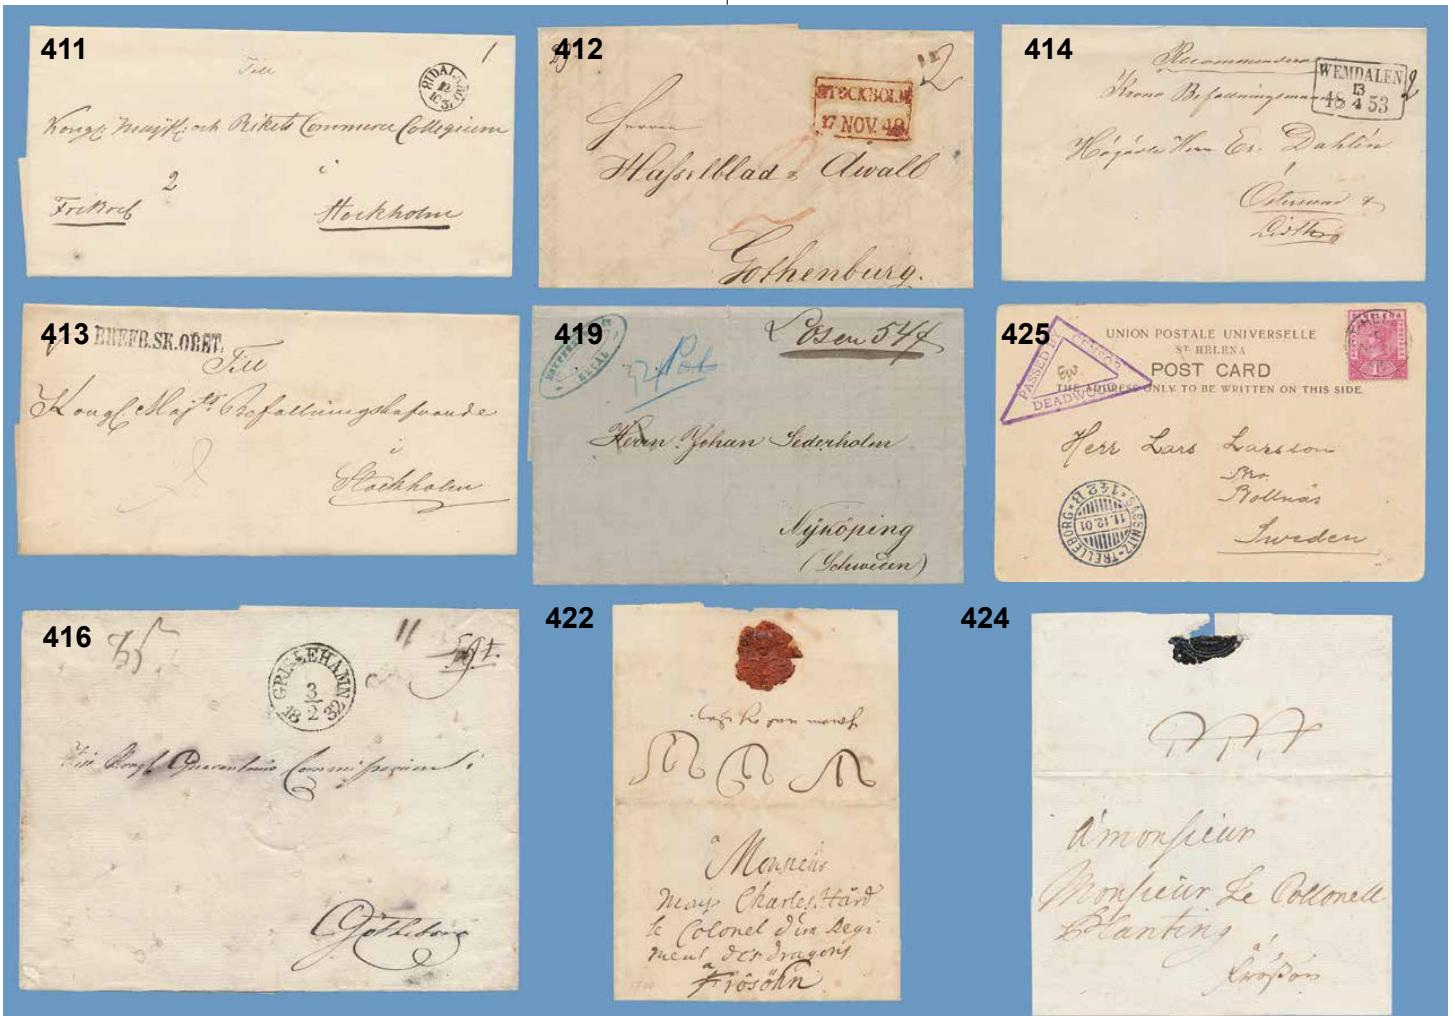 411
Till
1
Kongl: Maj:ts och Rikets Commerce Collegium
2
i
Fribref
Stockholm
412
2
STOCKHOLM
17 NOV. 48
Herrar
Hasselblad & Awall
Gothenburg.
414
Recommenderas
WEMDALEN
13
18 4 53
2
Krono Befallningsmannen
Högädle Herr Er. Dahlin
i
Östersund &
413
BREFB.SK.ORET.
Till
Kongl Maj:ts Befallningshafvande
i
Stockholm
419
REVAL
Lösen 544
Herrn Johan Sederholm
Nyköping
(Schweden)
425
UNION POSTALE UNIVERSELLE
ST. HELENA
POST CARD
THE ADDRESS ONLY TO BE WRITTEN ON THIS SIDE.
PASSED BY CENSOR
DEADWOOD
Herr Lars Larsson
Bollnäs
Sweden
SASSNITZ-TRELLEBORG
* 142 B *
11.12.01
416
GRISLEHAMN
3
18 2 32
Till Kongl. Quarantains Commissionen i
Götheborg
422
a
Monsieur
Mons Charles Hård
le Colonel d'un Regi
ment des dragons
a
Frösöhn
424
A monsieur
Monsieur Le Collonell
Planting
a
Frösön